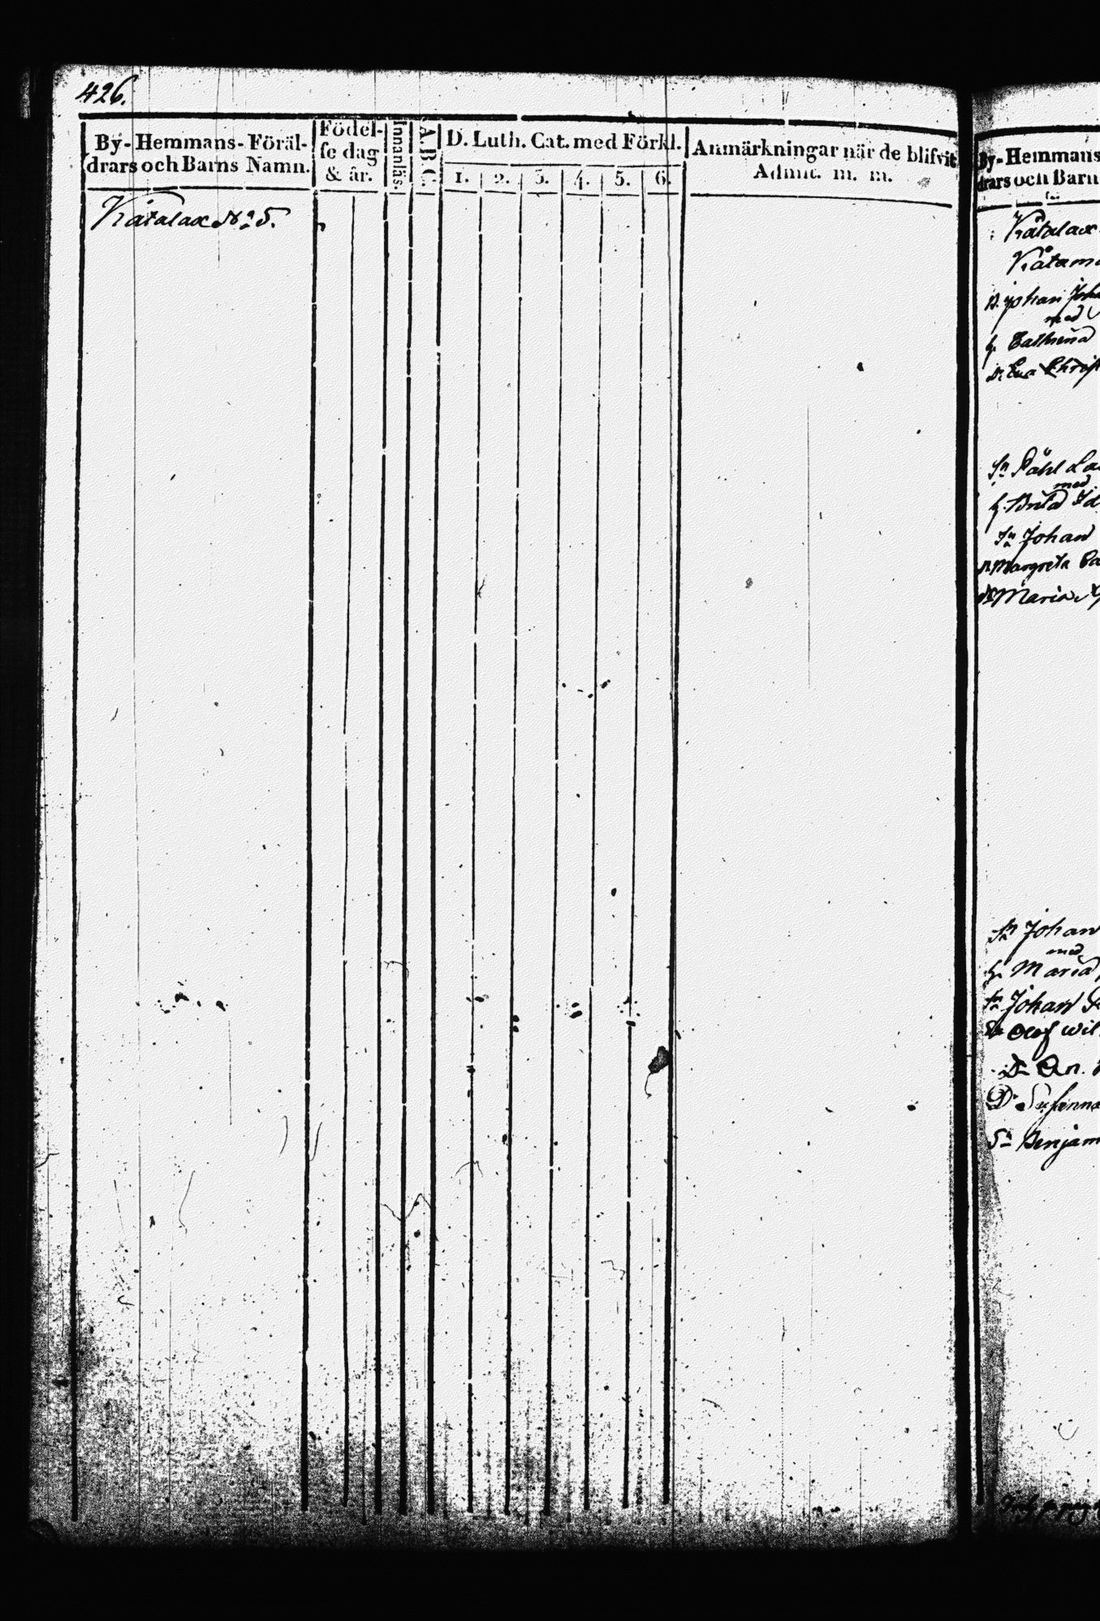 426.
By- Hemmans- Föräl-
drars och Barns Namn.
Födel-
se dag
& år.
Innanläs.
A.B.C.
D. Luth. Cat. med Förkl.
1. 2. 3. 4. 5. 6.
Anmärkningar när de blifvit
Admit. m. m.
Kåtalax No 5.
By- Hemmans
drars och Barn
Kåtalax
Johan
med
Cathrina
Påhl
med
Brita
Sn Johan
Margreta
Maria
Sn Johan
med
Maria
Sn Johan
Olof Wil
D.
Susanna
Sn Benjam